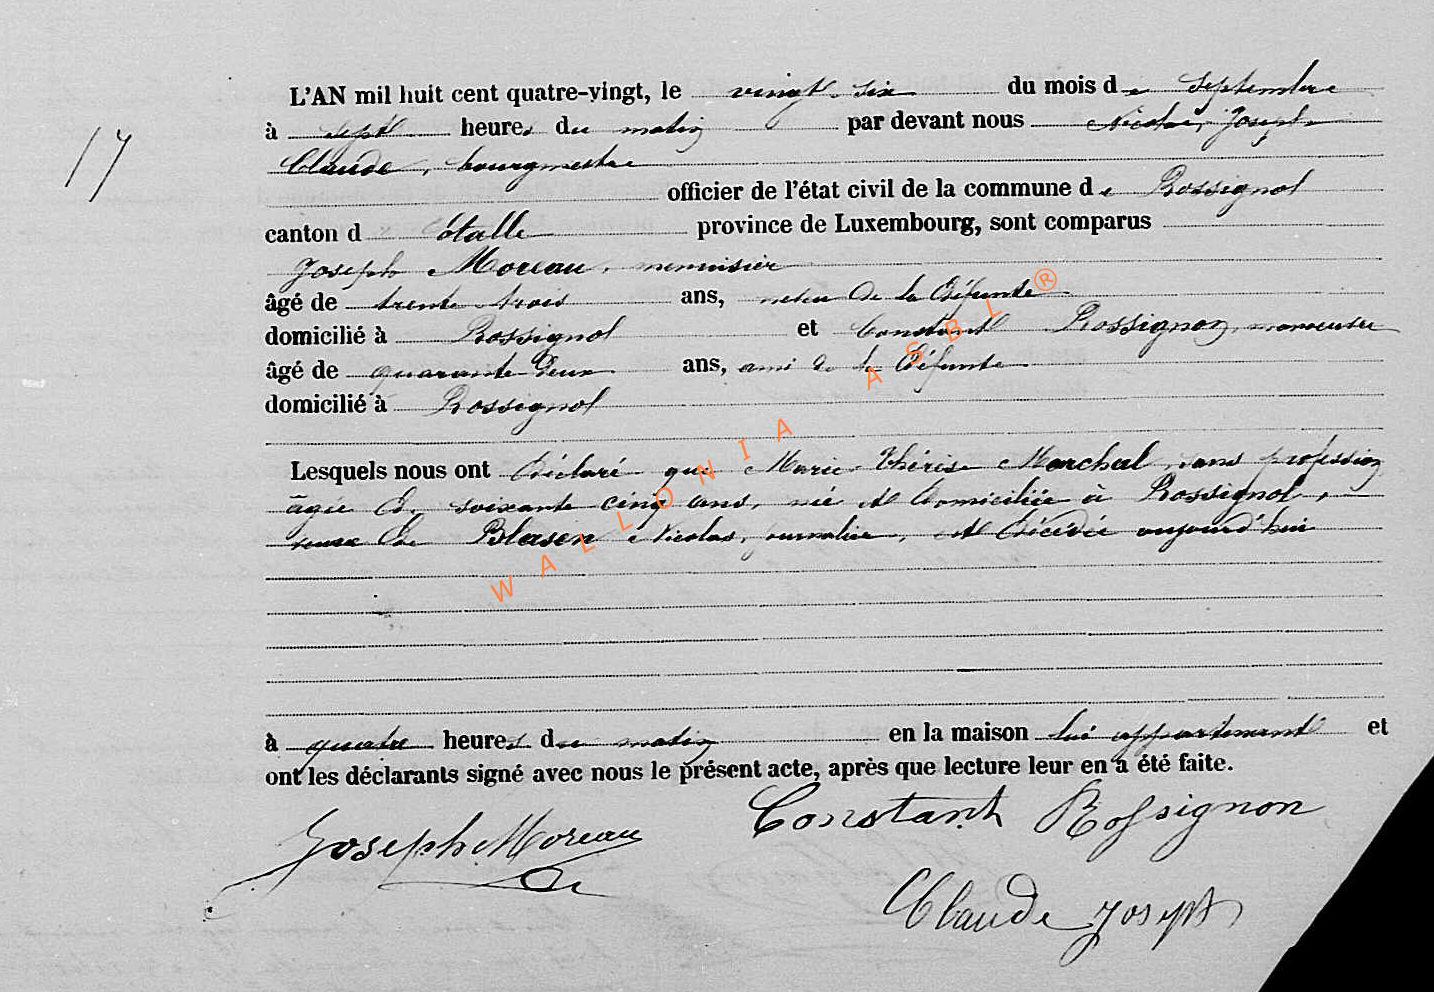 17
L'AN mil huit cent quatre-vingt, le vingt-six du mois de Septembre
à sept heures du matin par devant nous Nicolas, Joseph
Claude, bourgmestre
officier de l'état civil de la commune de Rossignol
canton d Etalle province de Luxembourg, sont comparus
Joseph Moreau, menuisier
âgé de trente trois ans, neveu de la défunte
domicilié à Rossignol et Constant Rossignon,
âgé de quarante deux ans, ami de la défunte
domicilié à Rossignol
Lesquels nous ont déclaré que Marie Thérèse Marchal, sans profession
âgée de soixante cinq ans, née et domiciliée à Rossignol,
veuve de Blasen Nicolas, journalier, est décédée aujourd'hui
à quatre heures du matin en la maison lui appartenant et
ont les déclarants signé avec nous le présent acte, après que lecture leur en a été faite.
Joseph Moreau
Constant Rossignon
Claude Joseph
WALLONIA ASBL ®